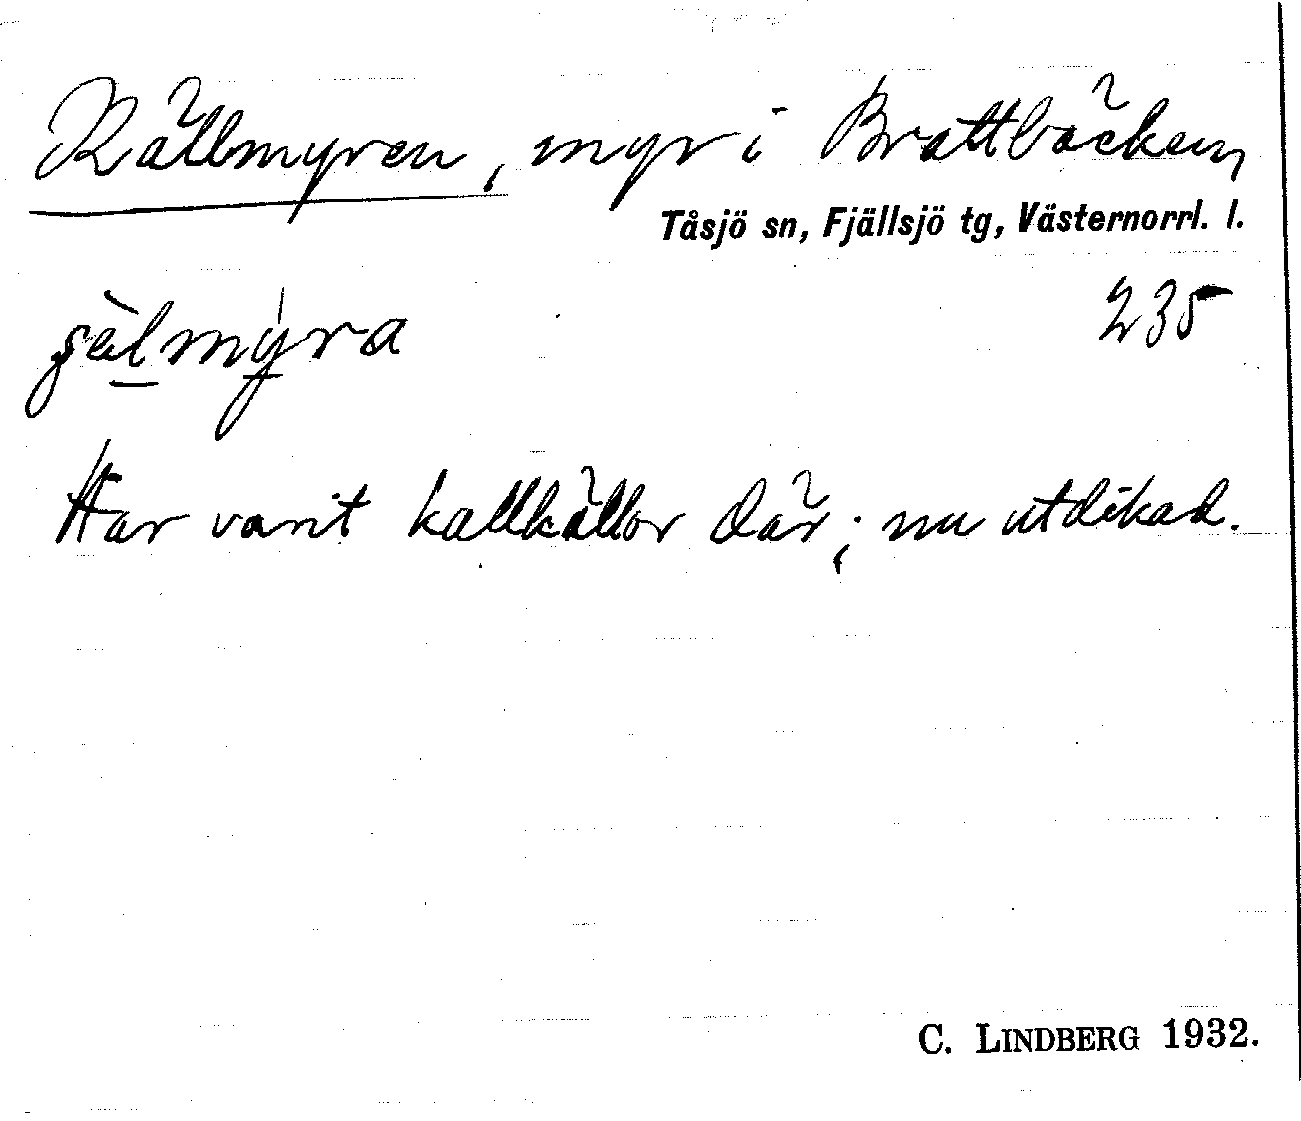 Källmyren, myr i Brattbäcken
Tåsjö sn, Fjällsjö tg, Västernorrl. l.
235
Har varit kallkällor där; nu utdikad.
C. LINDBERG 1932.